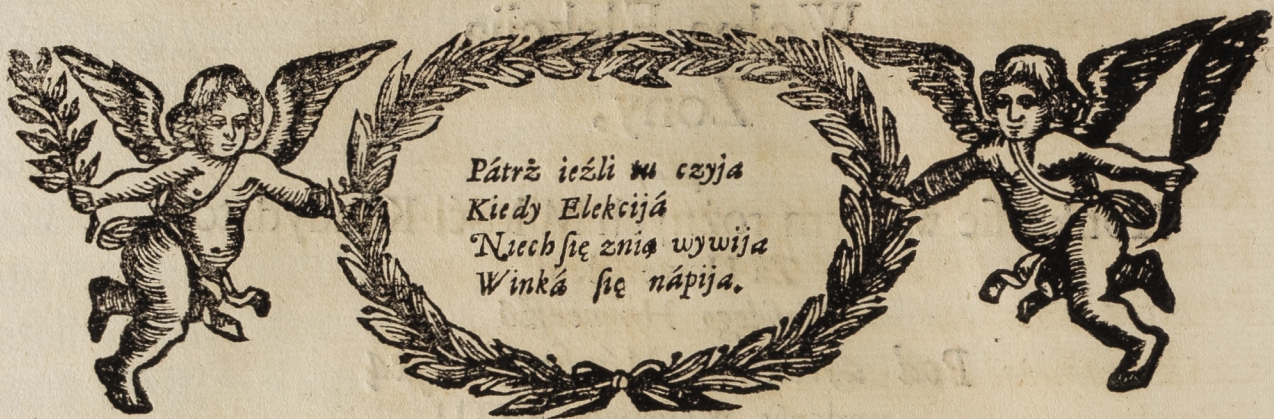 Pátrż ieźli tu czyja
Kiedy Elekcijá
Niech ſię znią wywija
Winká ſię nápija.